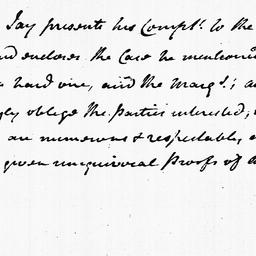 Jay presents his Complts. to the
encloses the Case he mentioned
hard one, and the Marqs.; a
oblige the Parties interested;
are numerous & respectable,
given unequivocal Proofs of